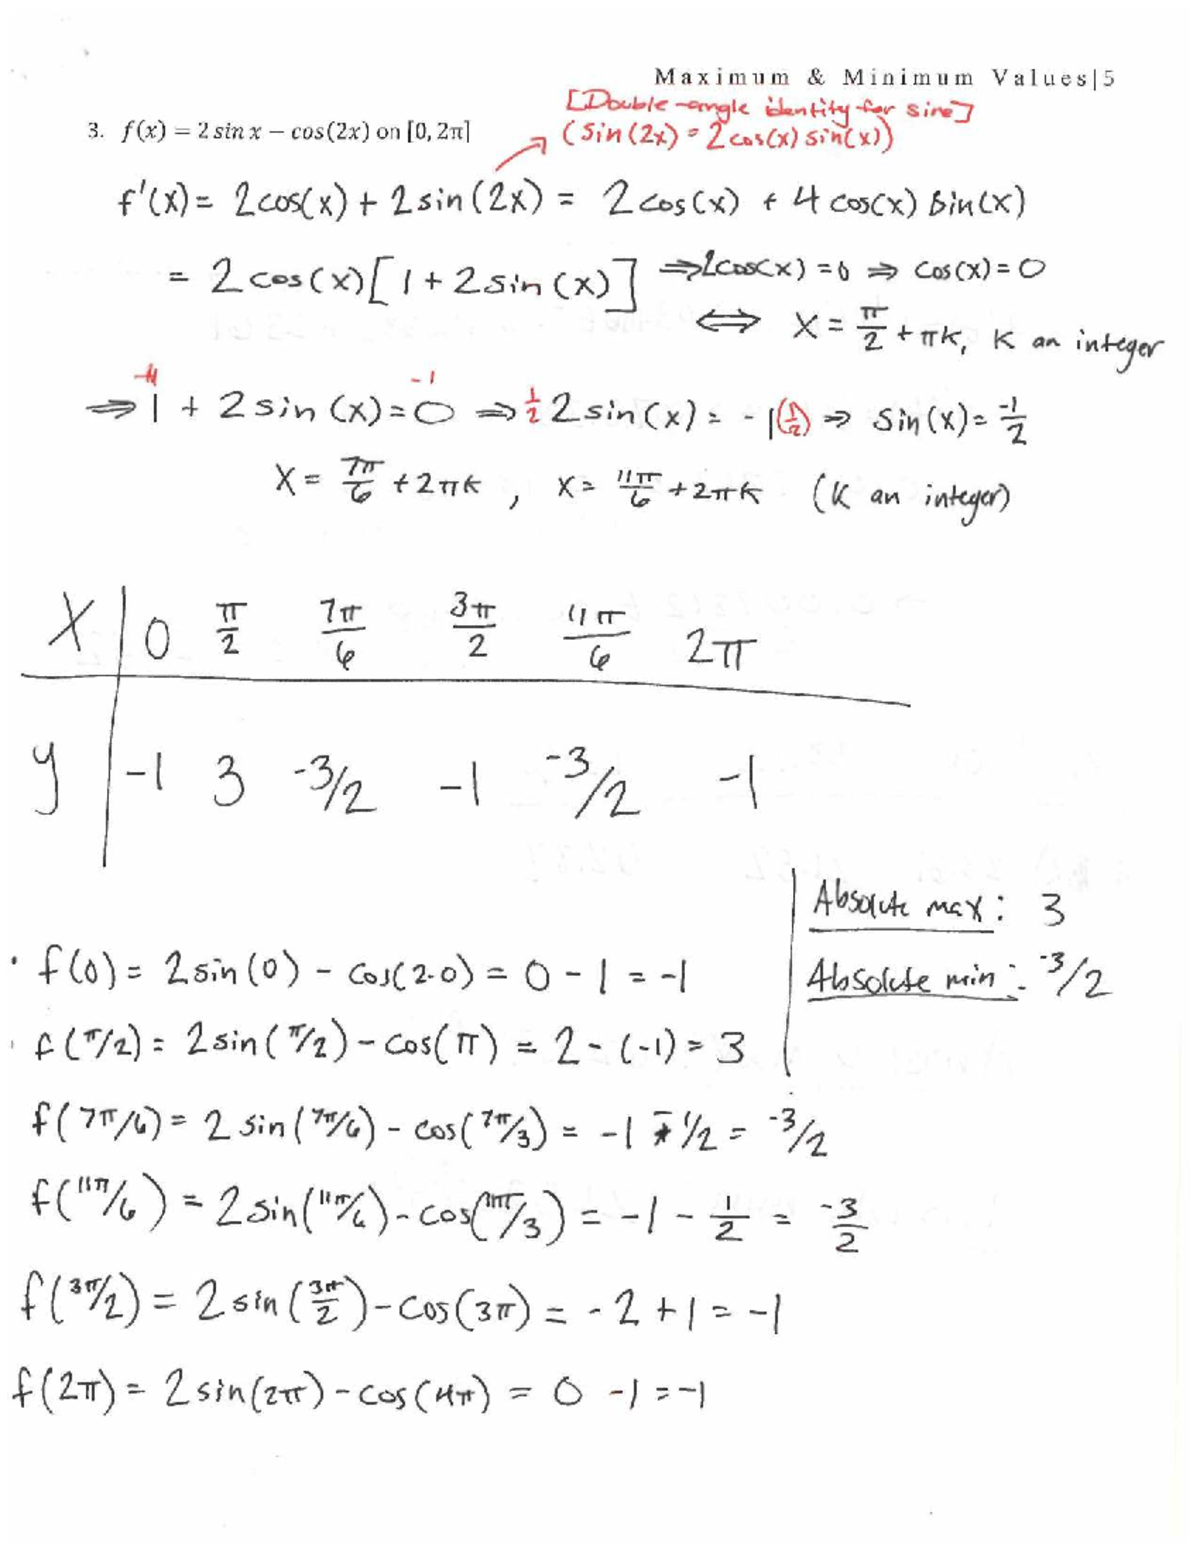 Maximum & Minimum Values|5
[Double-angle identity for sine]
(sin(2x) = 2cos(x) sin(x))
3. f(x) = 2 sin x − cos(2x) on [0, 2π]
f'(x) = 2cos(x) + 2sin(2x) = 2cos(x) + 4cos(x) sin(x)
= 2cos(x)[1 + 2sin(x)] ⇒ 2cos(x) = 0 ⇒ cos(x) = 0
⇔ x = π/2 + πk, k an integer
-1 -1
⇒ 1 + 2sin(x) = 0 ⇒ 1/2 2sin(x) = -1(1/2) ⇒ sin(x) = -1/2
x = 7π/6 + 2πk, x = 11π/6 + 2πk (k an integer)
x | 0 π/2 7π/6 3π/2 11π/6 2π
y | -1 3 -3/2 -1 -3/2 -1
Absolute max: 3
Absolute min: -3/2
· f(0) = 2sin(0) - cos(2·0) = 0 - 1 = -1
· f(π/2) = 2sin(π/2) - cos(π) = 2 - (-1) = 3
f(7π/6) = 2sin(7π/6) - cos(7π/3) = -1 - 1/2 = -3/2
f(11π/6) = 2sin(11π/6) - cos(11π/3) = -1 - 1/2 = -3/2
f(3π/2) = 2sin(3π/2) - cos(3π) = -2 + 1 = -1
f(2π) = 2sin(2π) - cos(4π) = 0 - 1 = -1